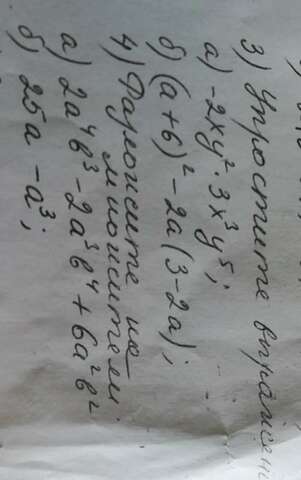 3) Упростите выражени
а) -2xy²·3x³y⁵;
б) (a+6)²-2a(3-2a);
4) Разложите на
множители
а) 2a⁴b³-2a³b⁴+6a²b²
б) 25a-a³;